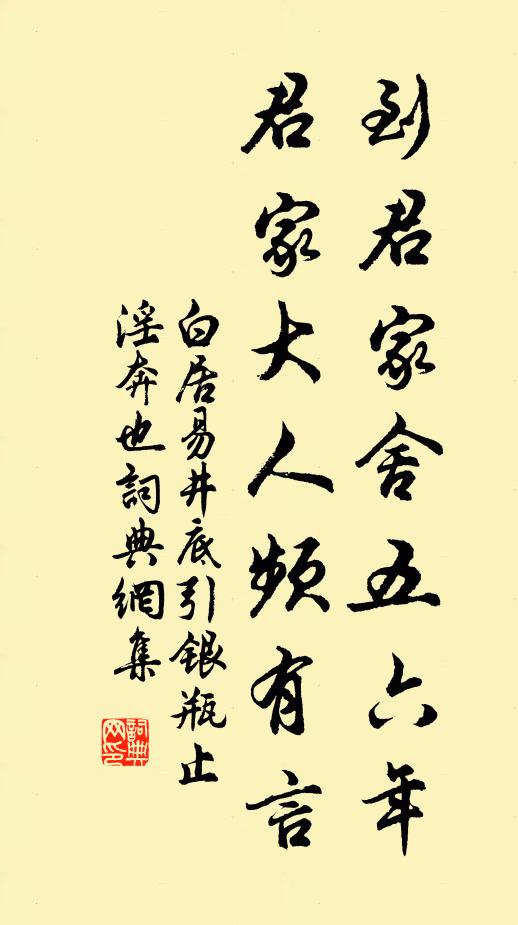 到君家舍五六年
君家大人频有言
白居易井底引銀瓶止
淫奔也詞典網集
詞典网印